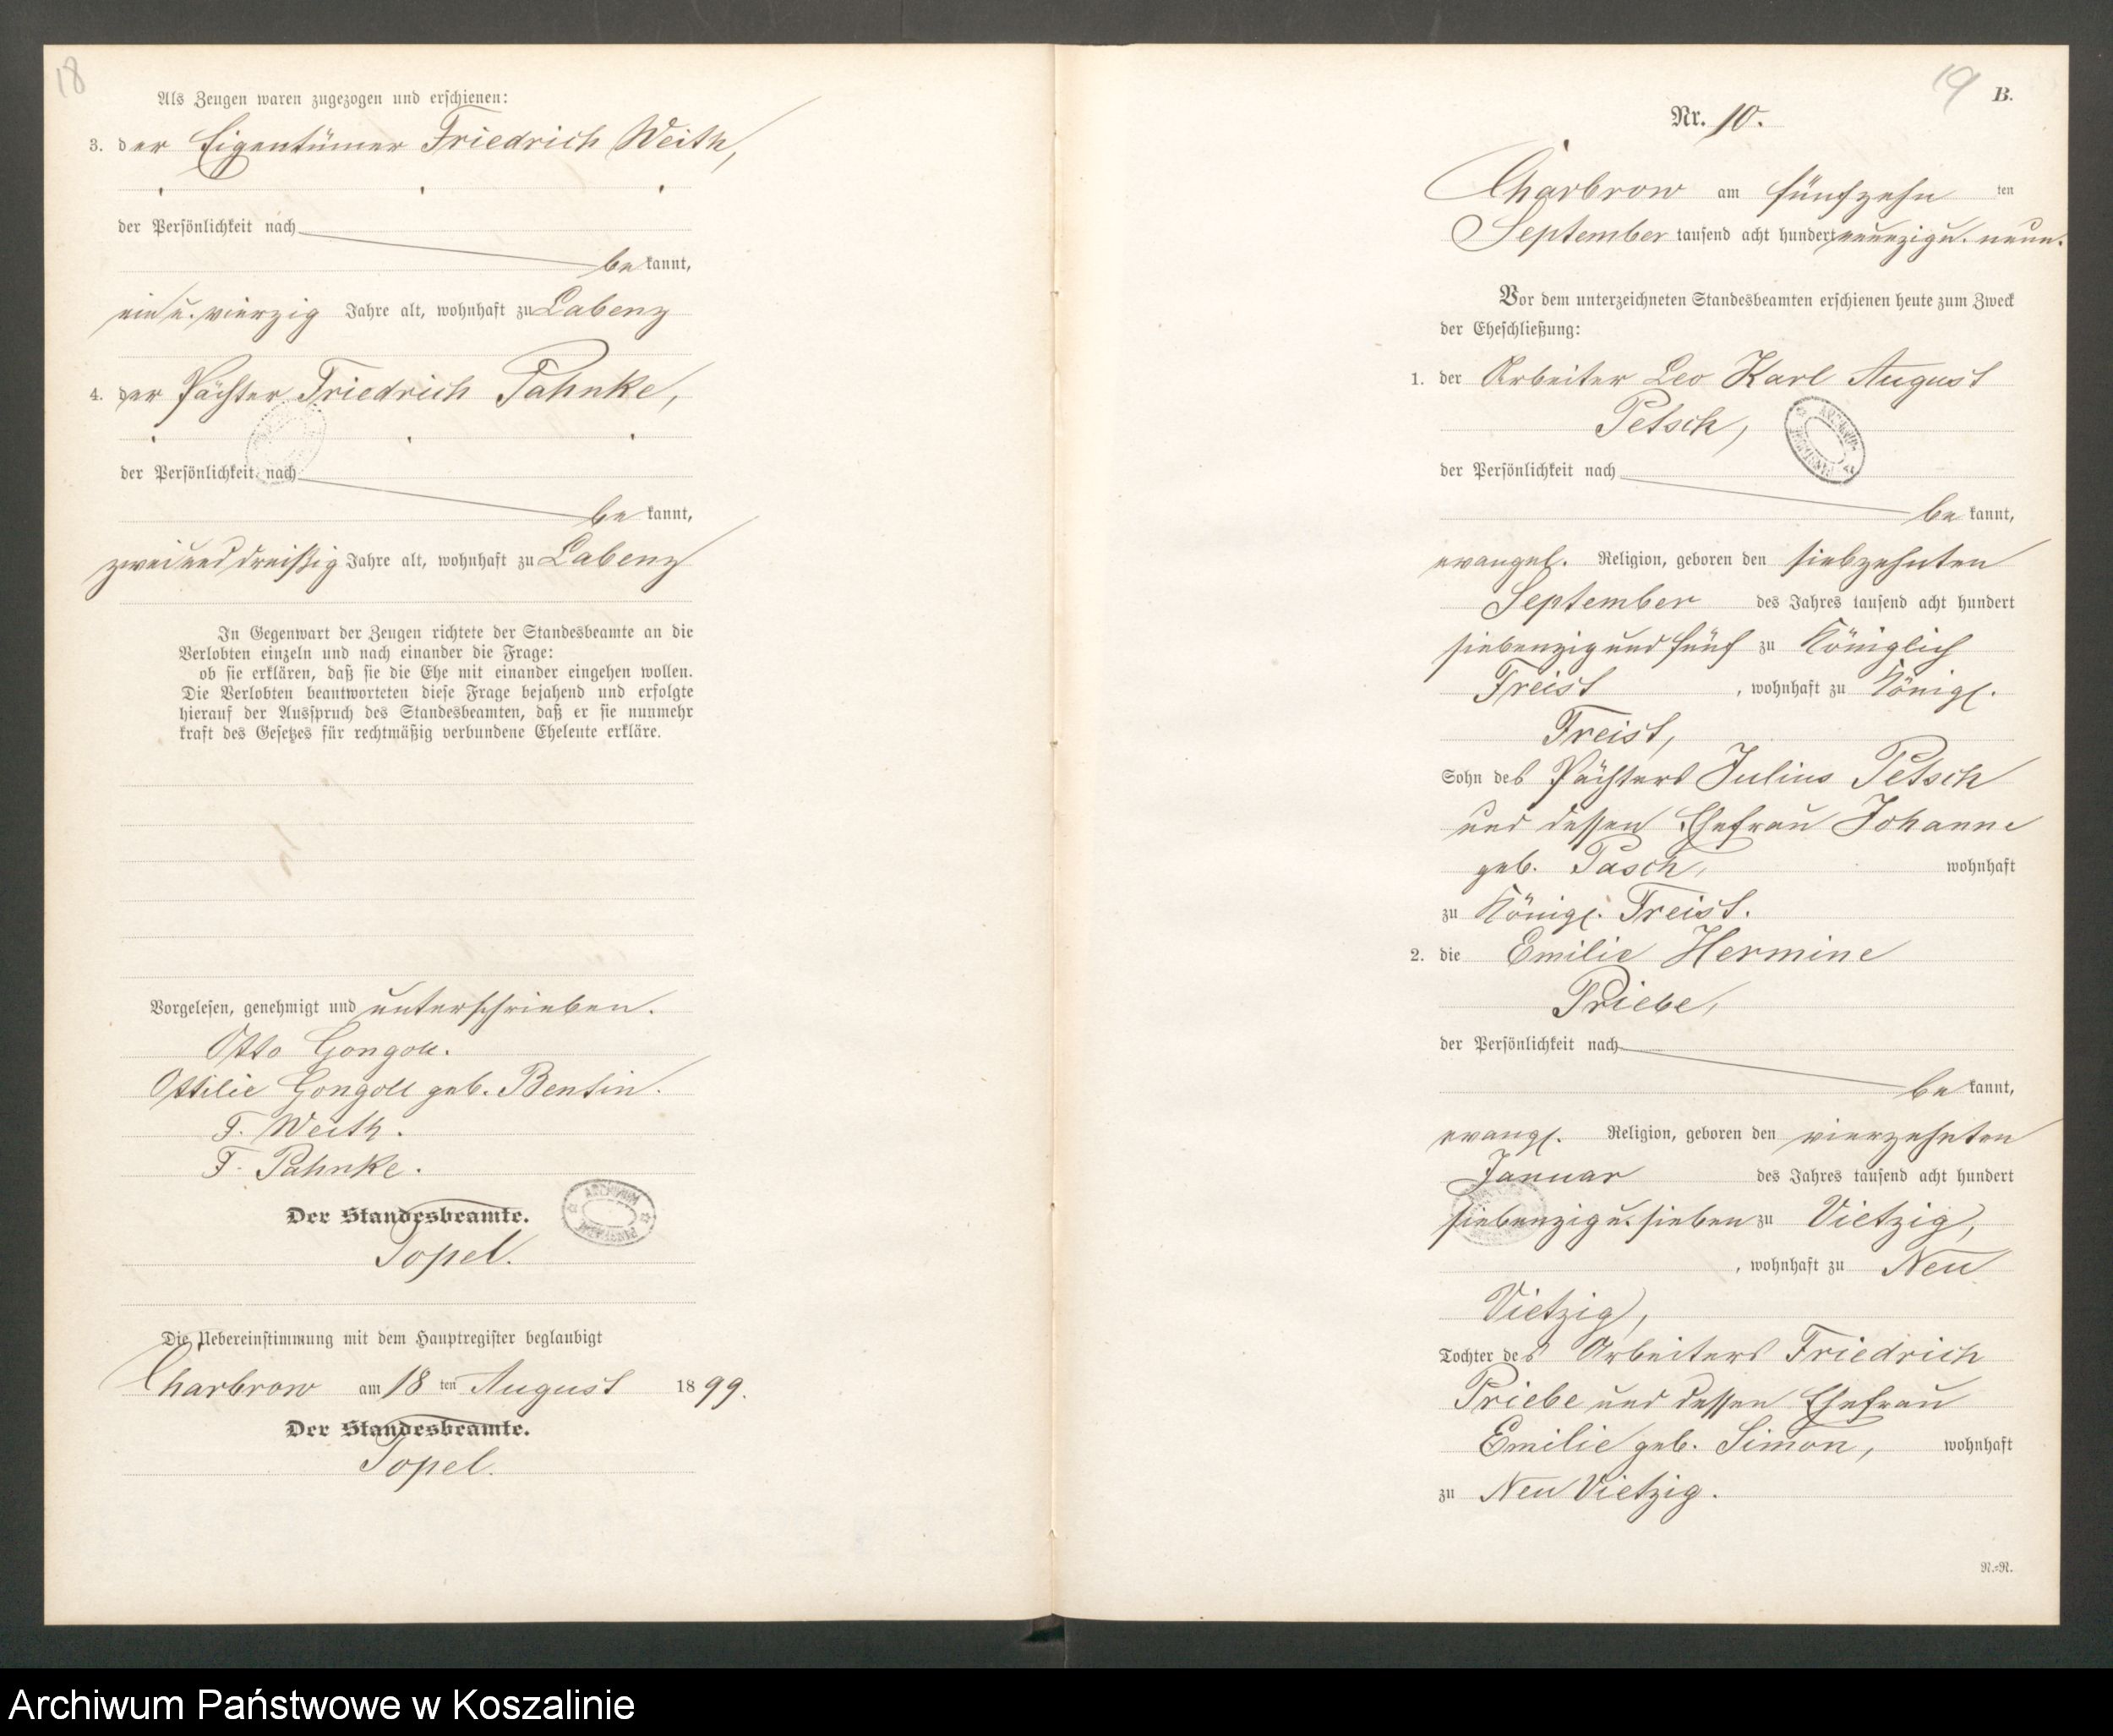 18
Als Zeugen waren zugezogen und erschienen:
3. der Eigentümer Friedrich Weith,
der Persönlichkeit nach
bekannt,
ein u. vierzig Jahre alt, wohnhaft zu Labenz
4. der Pächter Friedrich Pahnke,
der Persönlichkeit nach
bekannt,
zweiunddreißig Jahre alt, wohnhaft zu Labenz
In Gegenwart der Zeugen richtete der Standesbeamte an die
Verlobten einzeln und nach einander die Frage:
ob sie erklären, daß sie die Ehe mit einander eingehen wollen.
Die Verlobten beantworteten diese Frage bejahend und erfolgte
hierauf der Ausspruch des Standesbeamten, daß er sie nunmehr
kraft des Gesetzes für rechtmäßig verbundene Eheleute erkläre.
Vorgelesen, genehmigt und unterschrieben.
Otto Gongoll.
Ottilie Gongoll geb. Bentin.
F. Weith.
F. Pahnke.
Der Standesbeamte.
Topel.
ARCHIWUM
Die Uebereinstimmung mit dem Hauptregister beglaubigt
Charbrow am 18 ten August 1899.
Der Standesbeamte.
Topel.
19
B.
Nr. 10.
Charbrow am fünfzehn ten
September tausend acht hundert neunzig u. neun.
Vor dem unterzeichneten Standesbeamten erschienen heute zum Zweck
der Eheschließung:
1. der Arbeiter Leo Karl August
Petsch,
der Persönlichkeit nach
bekannt,
evangel. Religion, geboren den siebzehnten
September des Jahres tausend acht hundert
siebenzig und fünf zu Königlich
Freist, wohnhaft zu Königl.
Freist,
Sohn des Pächters Julius Petsch
und dessen Ehefrau Johanne
geb. Pasch, wohnhaft
zu Königl. Freist.
2. die Emilie Hermine
Priebe,
der Persönlichkeit nach
bekannt,
evangl. Religion, geboren den vierzehnten
Januar des Jahres tausend acht hundert
siebenzig u. sieben zu Vietzig,
, wohnhaft zu Neu
Vietzig,
Tochter des Arbeiters Friedrich
Priebe und dessen Ehefrau
Emilie geb. Simon, wohnhaft
zu Neu Vietzig.
N.=N.
Archiwum Państwowe w Koszalinie